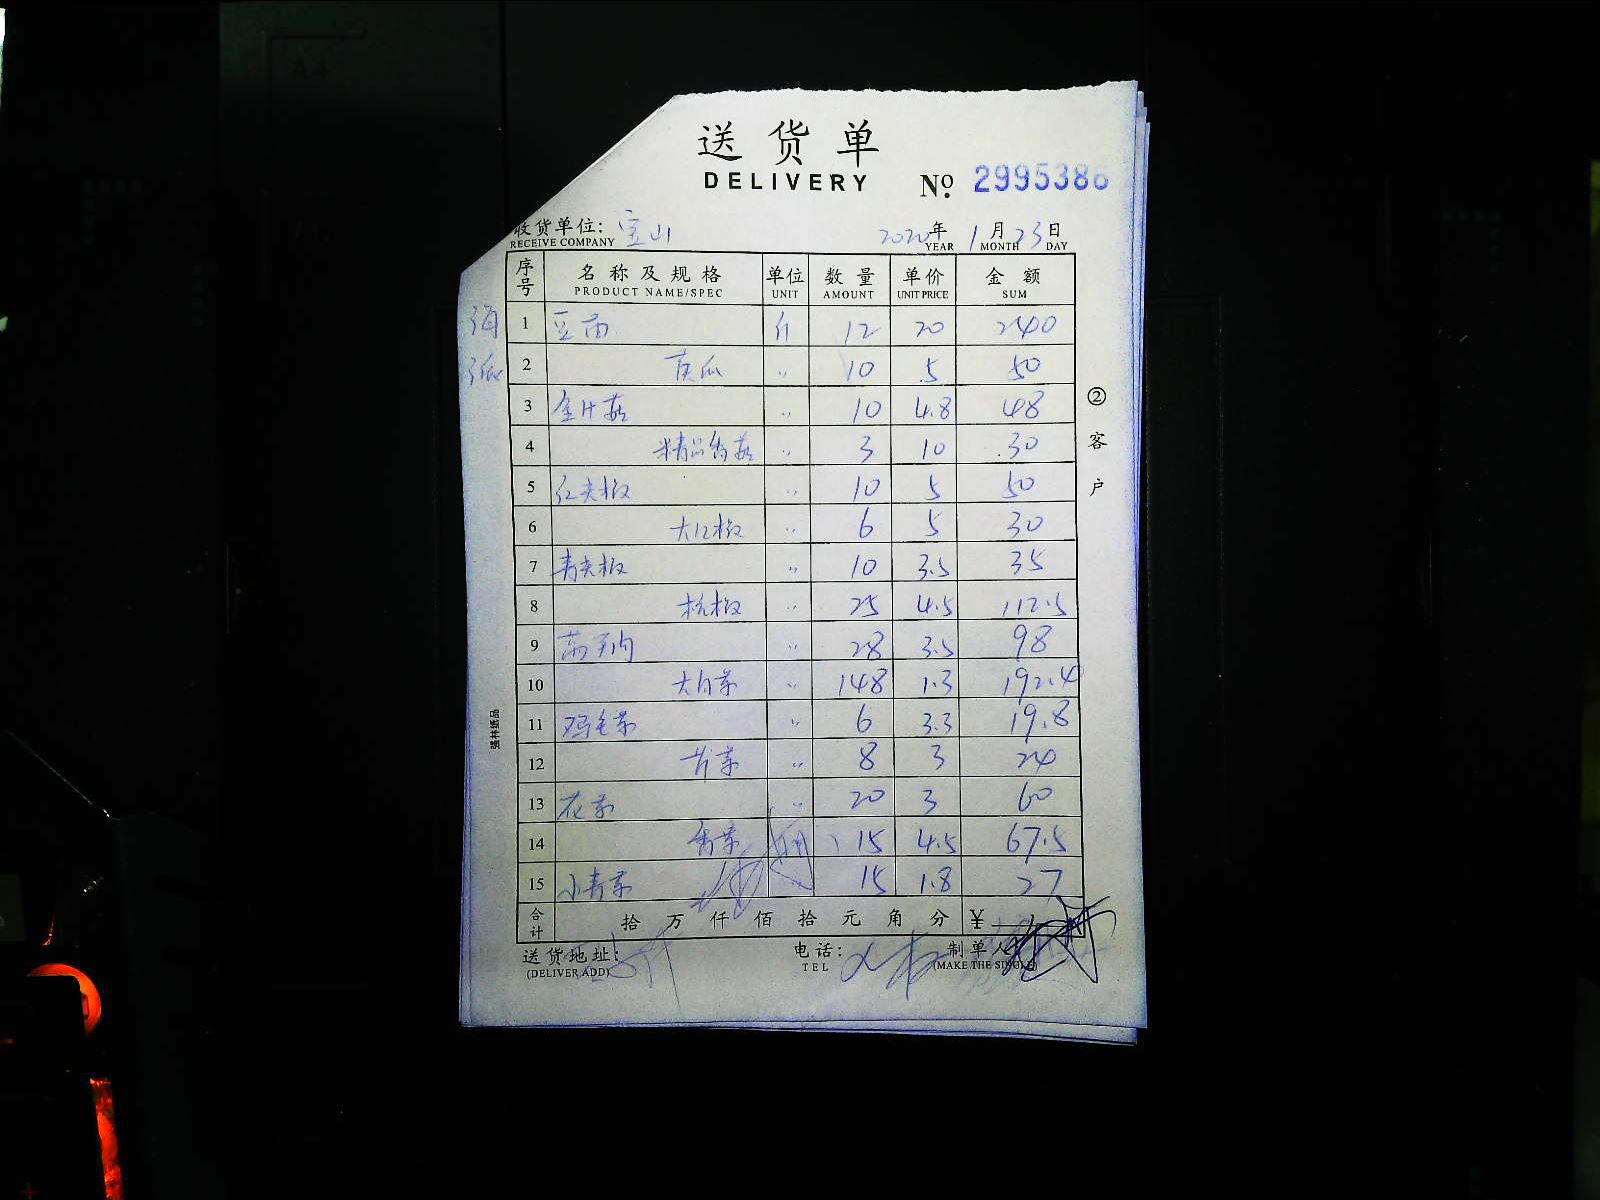 送货单
DELIVERY
№ 2995386
收货单位: 宝山 2020年 1月23日
RECEIVE COMPANY YEAR MONTH DAY
序号 名称及规格 单位 数量 单价 金额
PRODUCT NAME/SPEC UNIT AMOUNT UNIT PRICE SUM
1 豆苗 斤 12 20 240
2 黄瓜 〃 10 5 50
3 金针菇 〃 10 4.8 48
4 精品香菇 〃 3 10 30
5 红尖椒 〃 10 5 50
6 大红椒 〃 6 5 30
7 青尖椒 〃 10 3.5 35
8 杭椒 〃 25 4.5 112.5
9 〃 28 3.5 98
10 大白菜 〃 148 1.3 192.4
11 鸡毛菜 〃 6 3.3 19.8
12 芹菜 〃 8 3 24
13 花菜 〃 20 3 60
14 香菜 15 4.5 67.5
15 小青菜 15 1.8 27
合计 拾万仟佰拾元角分 ¥
送货地址: 电话: 制单人
(DELIVER ADD) TEL (MAKE THE SINGLE)
②客户
强林纸品